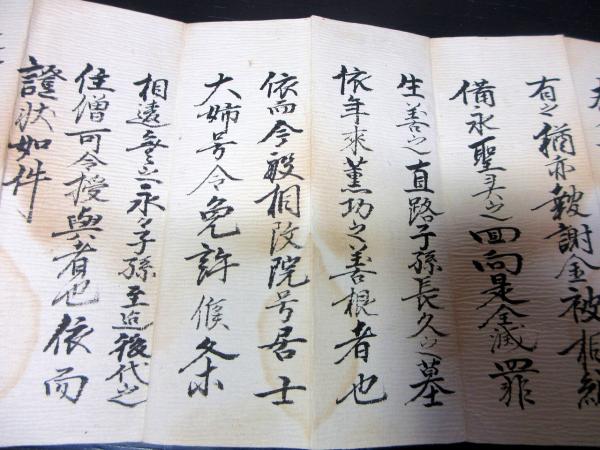 有之猶亦報謝金被相納
備永聖㚑之回向是全滅罪
生善之直路子孫長久之墓
依年来薫功之善根者也
依而今般相改院号居士
大姉号令免許候条
相違無之永々子孫至迄後代之
住僧可令授與者也依而
證状如件